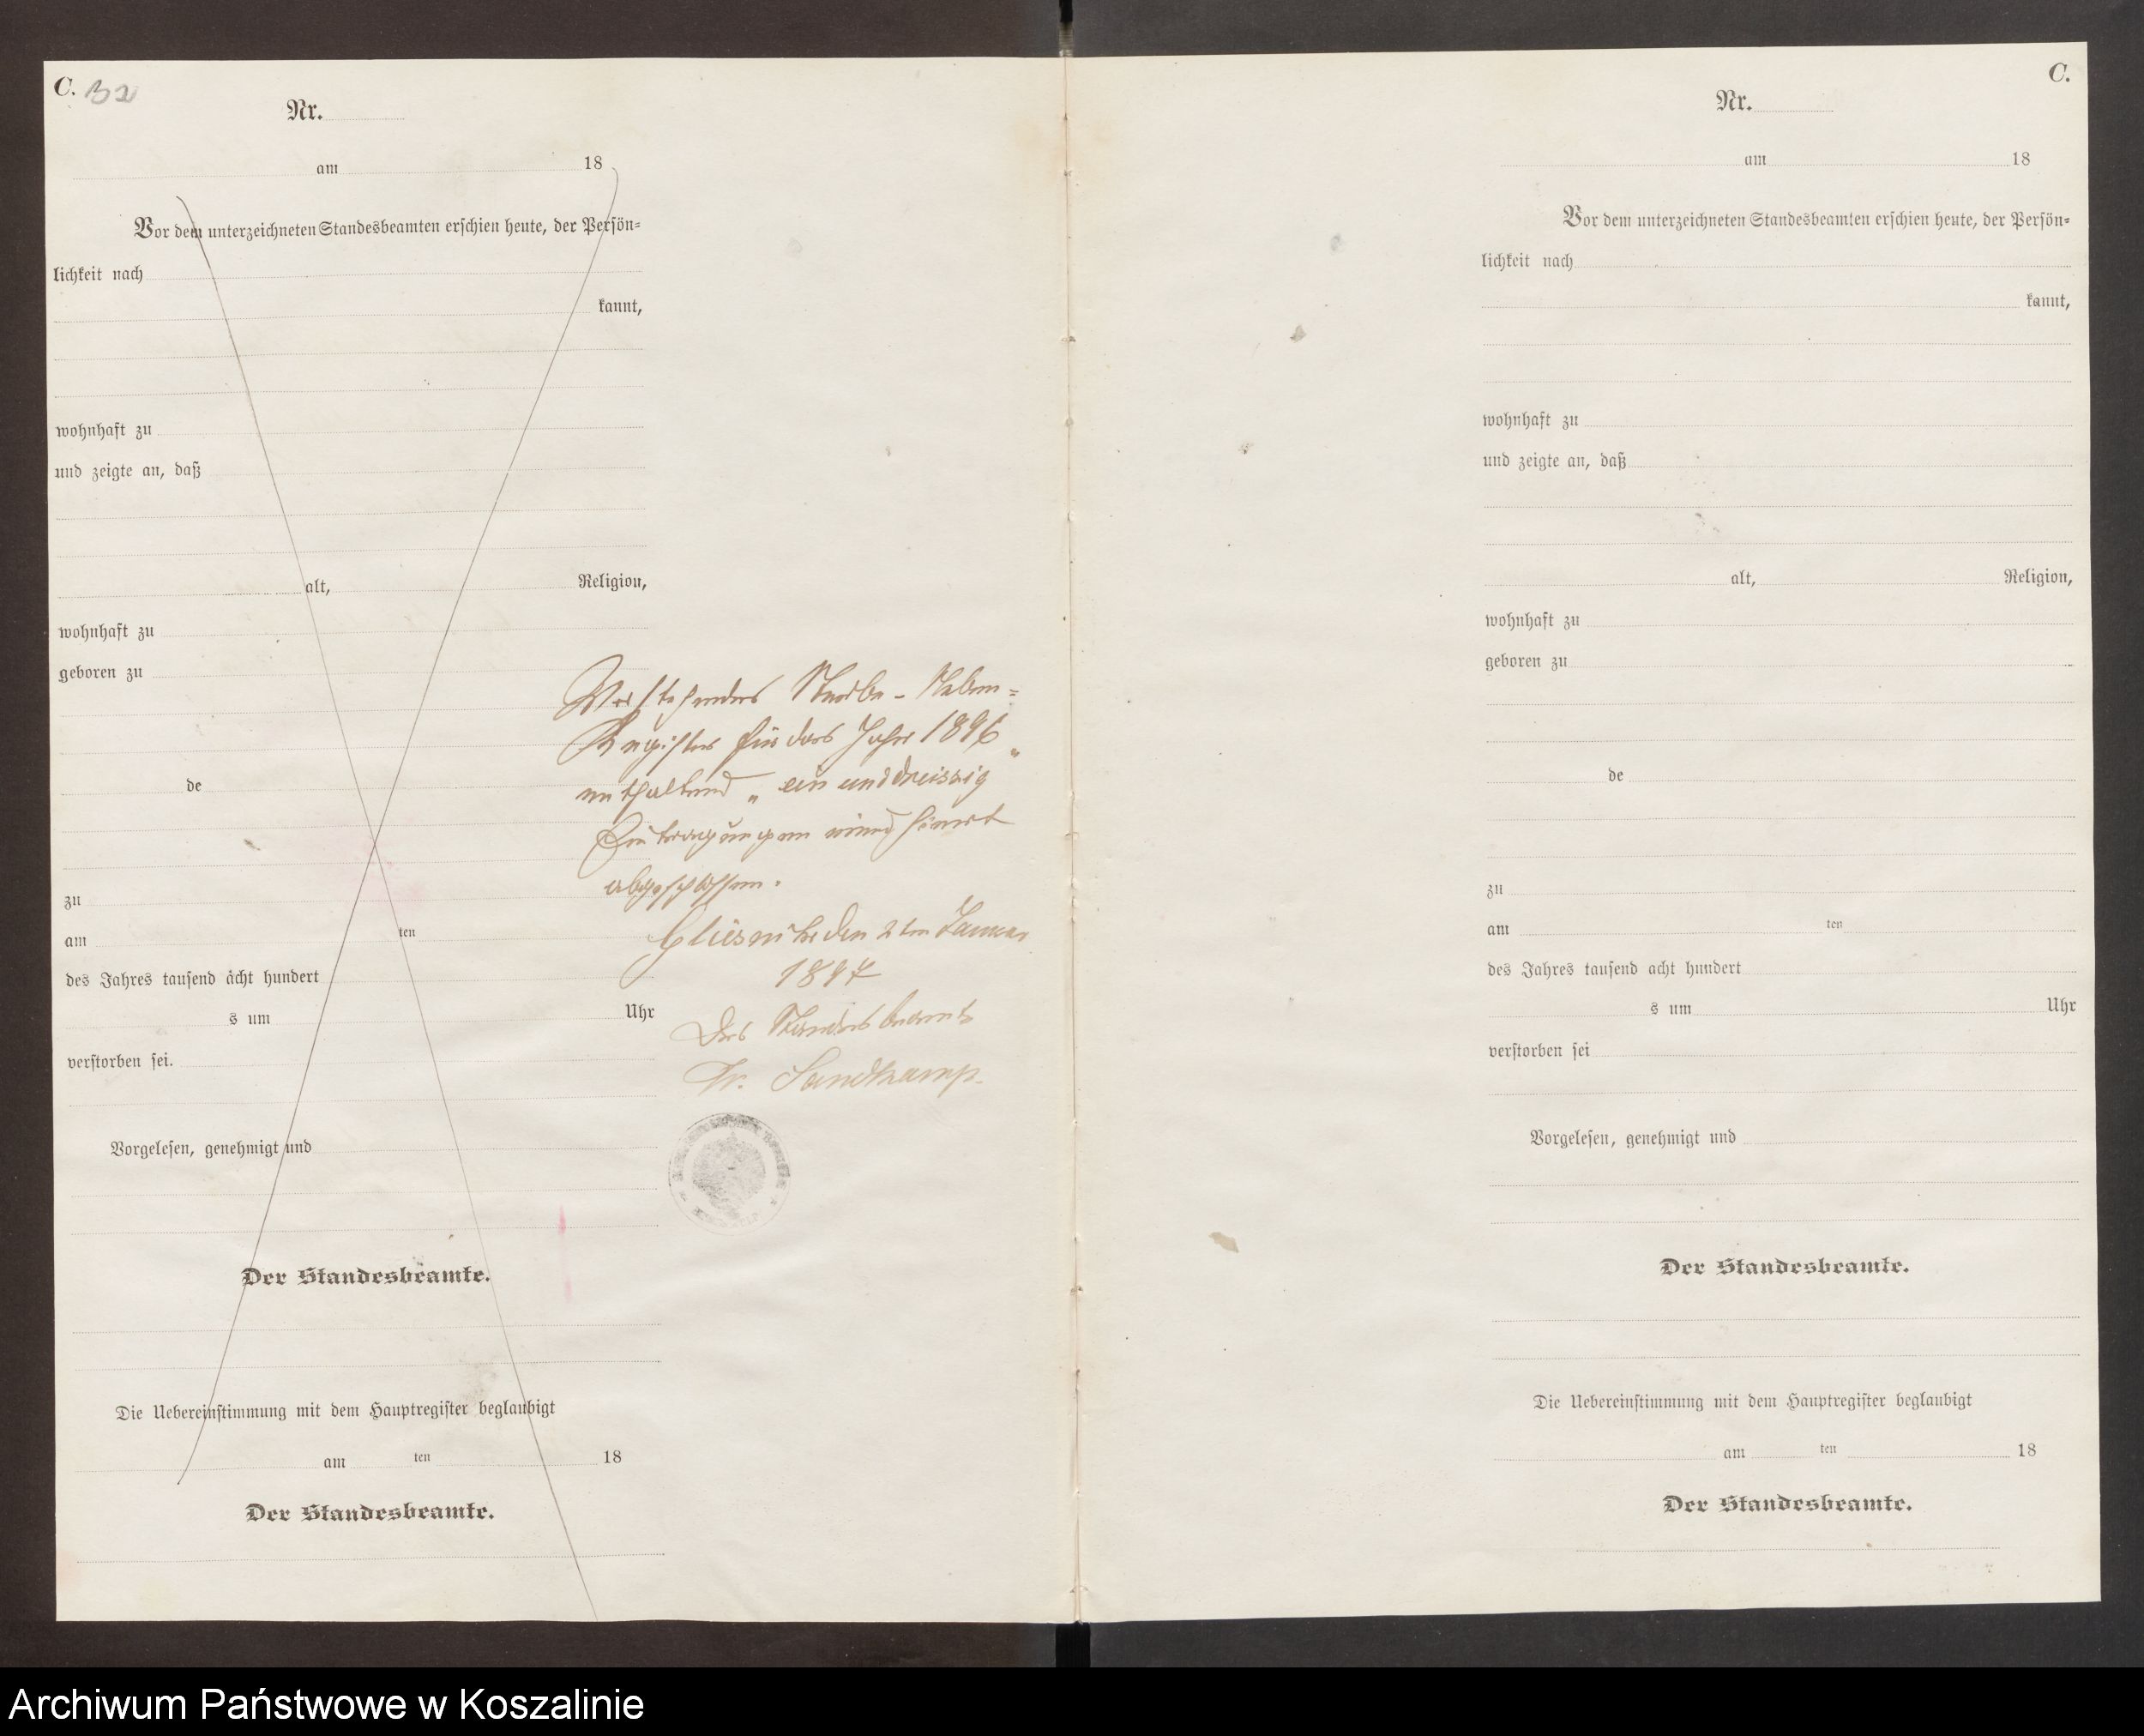 C. 32
Nr.
am 18
Vor dem unterzeichneten Standesbeamten erschien heute, der Persön=
lichkeit nach
kannt,
wohnhaft zu
und zeigte an, daß
alt, Religion,
wohnhaft zu
geboren zu
de
zu
am ten
des Jahres tausend acht hundert
s um Uhr
verstorben sei.
Vorgelesen, genehmigt und
Der Standesbeamte.
Die Uebereinstimmung mit dem Hauptregister beglaubigt
am ten 18
Der Standesbeamte.
Vorstehendes Sterbe-Neben=
Register für das Jahr 1896
enthaltend „ein unddreissig“
Eintragungen wird hiermit
abgeschlossen.
den 2ten Januar
1897
Der Standesbeamte
Fr. Sandkamp
C.
Nr.
am 18
Vor dem unterzeichneten Standesbeamten erschien heute, der Persön=
lichkeit nach
kannt,
wohnhaft zu
und zeigte an, daß
alt, Religion,
wohnhaft zu
geboren zu
de
zu
am ten
des Jahres tausend acht hundert
s um Uhr
verstorben sei
Vorgelesen, genehmigt und
Der Standesbeamte.
Die Uebereinstimmung mit dem Hauptregister beglaubigt
am ten 18
Der Standesbeamte.
Archiwum Państwowe w Koszalinie